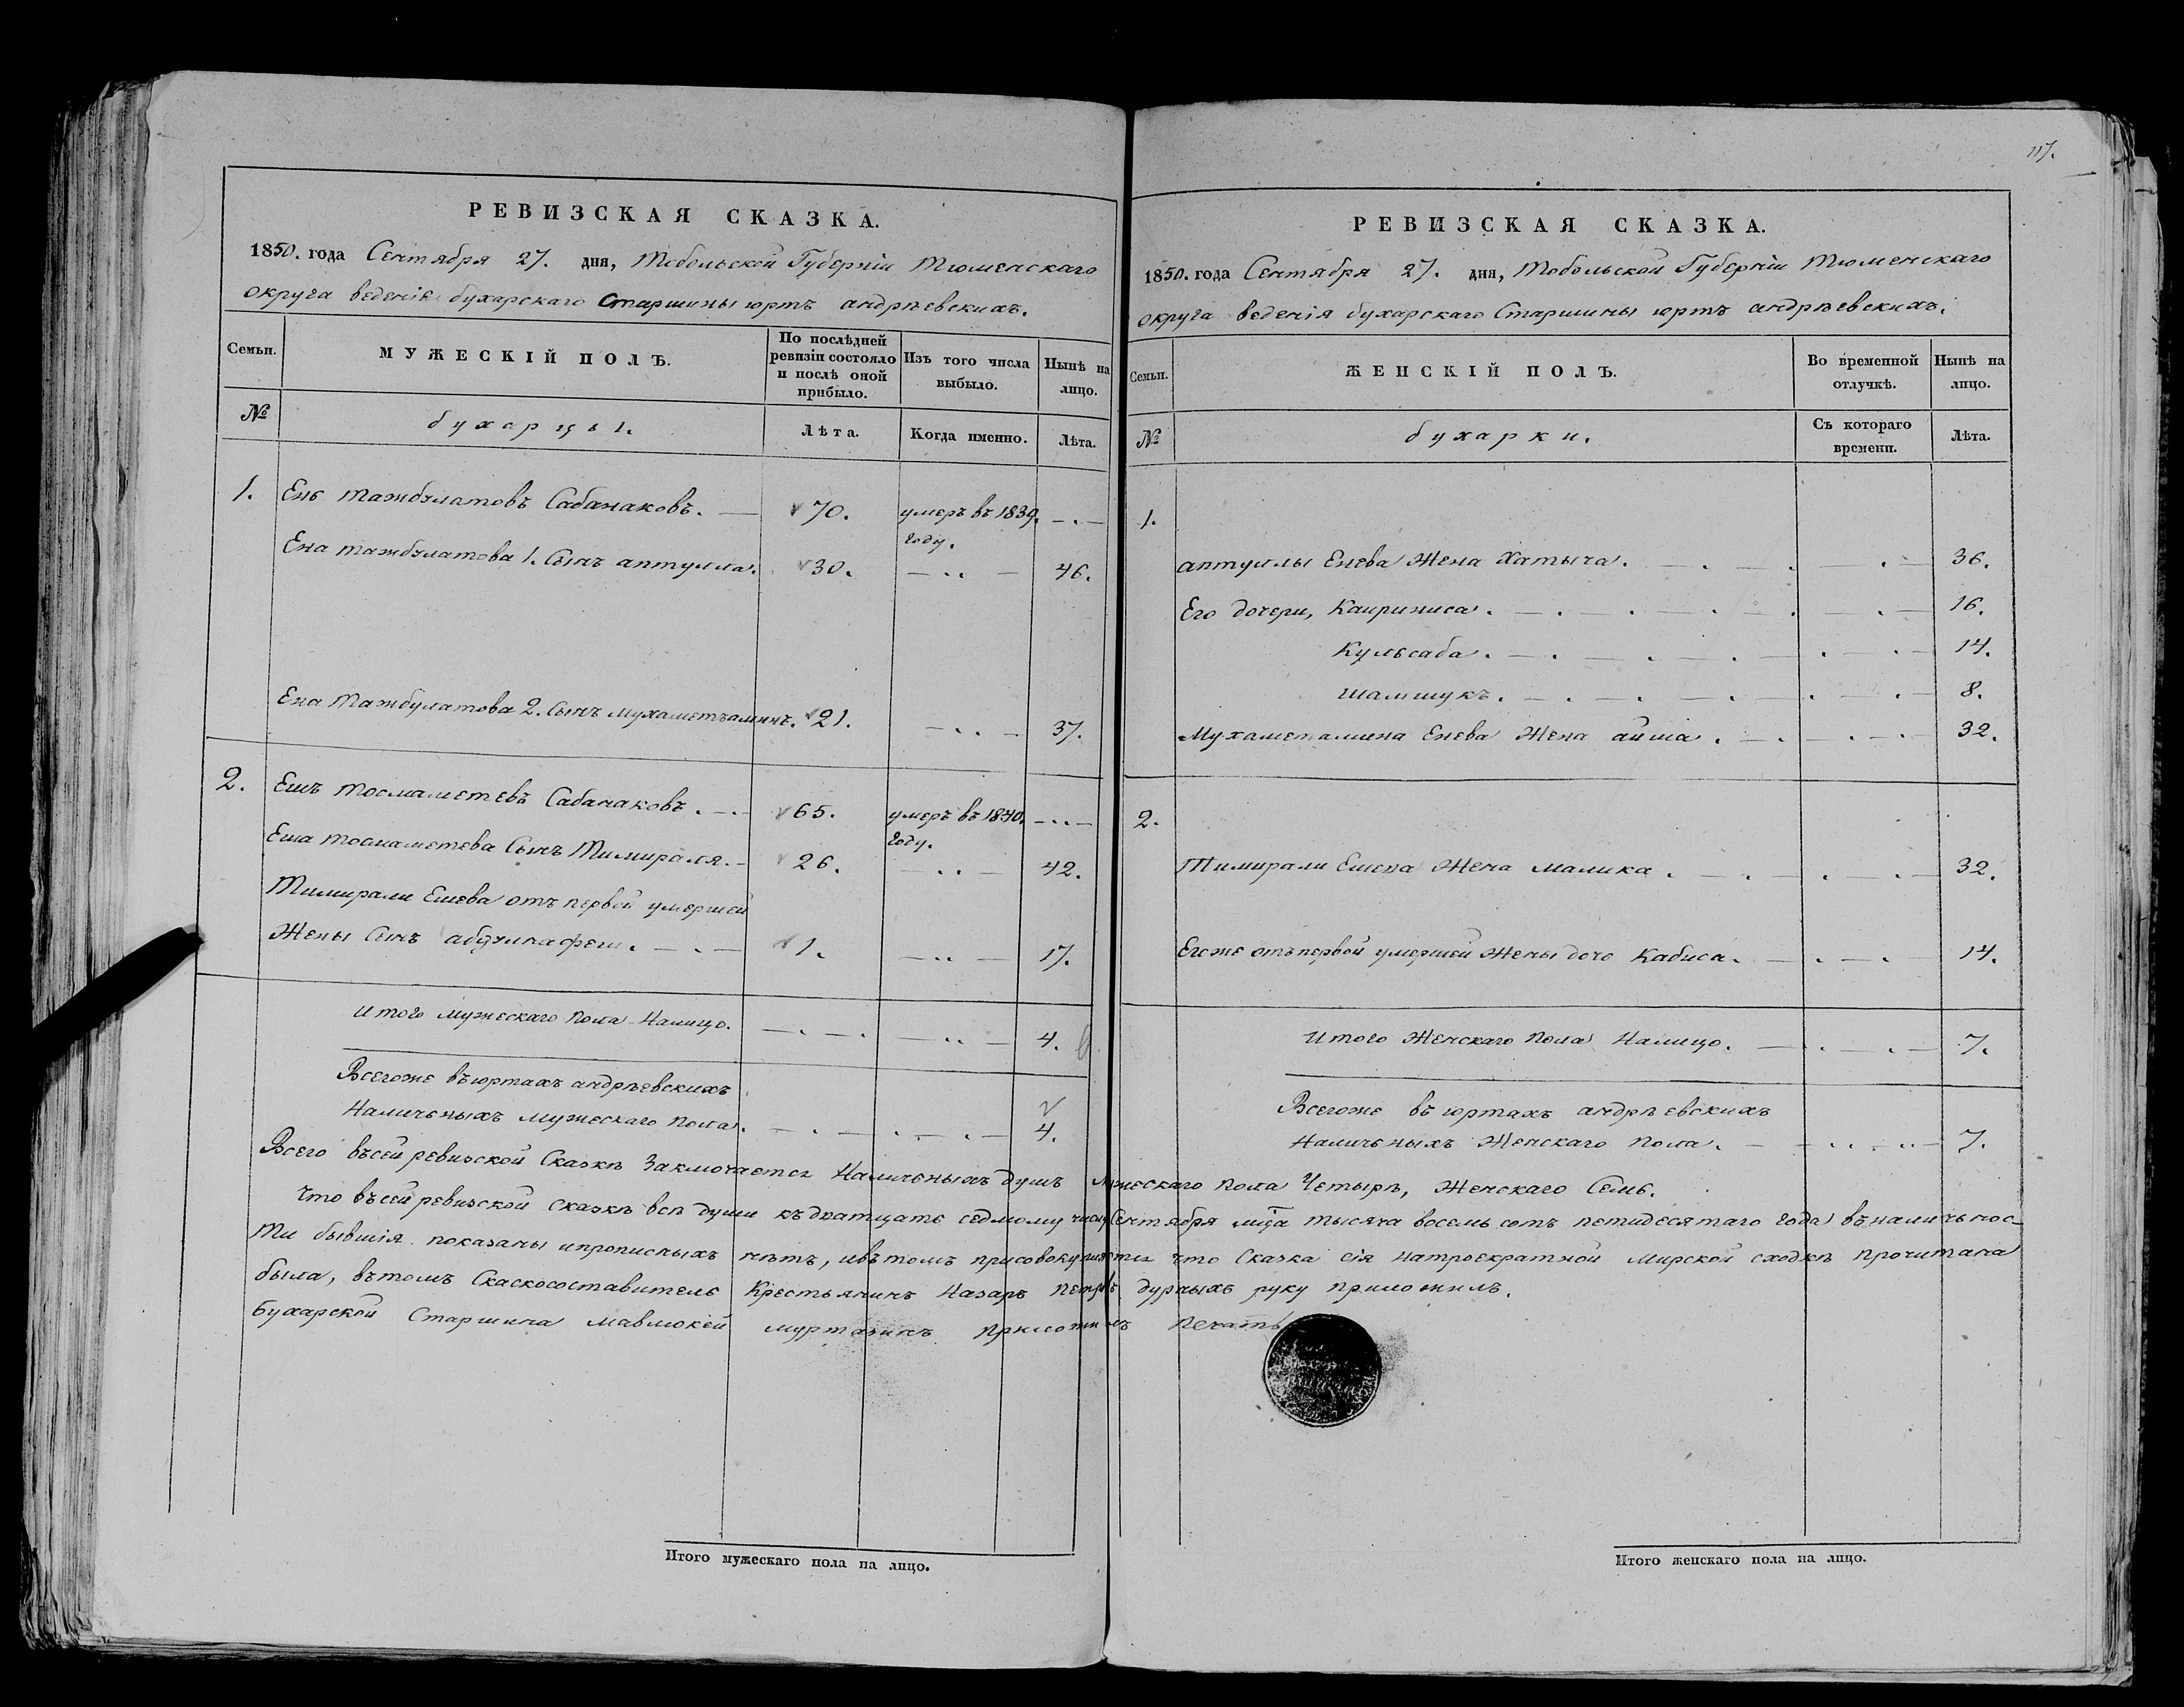 РЕВИЗСКАЯ СКАЗКА.
1850. года Сентября 27. дня, Тобольской Губерніи Тюменскаго
округа веденія бухарскаго Старшины юртъ андрѣевскихъ.
Семьи.
МУЖЕСКІЙ ПОЛЪ.
По послѣдней ревизіи состояло и послѣ оной прибыло.
Изъ того числа выбыло.
Нынѣ на лицо.
№
бухарцы.
Лѣта.
Когда именно.
Лѣта.
1. Ень тажбулатовъ Сабанаковъ. 70. умеръ въ 1839.
году.
Ена тажбулатова 1. Сынъ аптулла. 30. 46.
Ена Тажбулатова 2. Сынъ мухаметъаминъ. 21. 37.
2. Ешъ тосмаметевъ Сабанаковъ. 65. умеръ въ 1840.
году.
Еша тосмаметева Сынъ Тимираля. 26. 42.
Тимирали Ешева отъ первой умершей
Жены Сынъ 1. 17.
Итого мужескаго пола Налицо. 4.
Всегоже въ юртахъ андрѣевскихъ
Наличныхъ мужескаго пола. 4.
117.
РЕВИЗСКАЯ СКАЗКА.
1850. года Сентября 27. дня, Тобольской Губерніи Тюменскаго
округа веденія бухарскаго Старшины юртъ андрѣевскихъ.
Семьи.
ЖЕНСКІЙ ПОЛЪ.
Во временной отлучкѣ.
Нынѣ на лицо.
№
бухарки.
Съ котораго времени.
Лѣта.
1.
аптуллы Енева Жена Хатыча. 36.
Его дочери, Каириниса. 16.
Кульсаба. 14.
шамшукъ. 8.
Мухаметамина Енева Жена айша. 32.
2.
Тимирали Ешева Жена малика. 32.
Егоже отъ первой умершей Жены дочь Кабиса. 14.
Итого Женскаго пола Налицо. 7.
Всегоже въ юртахъ андрѣевскихъ
Наличьныхъ Женскаго пола. 7.
Всего въсей ревизской Сказкѣ Заключается Наличьныхъ душъ мужескаго пола Четырѣ, Женскаго Семь.
Что въсей ревизской сказкѣ всѣ души къ дватцать седмому числу Сентября мца тысяча восемь сотъ петидесятаго года въ наличьнос-
ти бывшія показаны ипрописныхъ нѣтъ, ивътомъ присовокупляется что Сказка сія натроекратной Мирской сходкѣ прочитана
была, вътомъ Скаскосоставитель Крестьянинъ Назаръ Петровъ дурныхъ руку приложилъ.
Бухарской Старшина мавлюкей муртазинъ приложилъ печать
Итого мужескаго пола на лицо.
Итого женскаго пола на лицо.